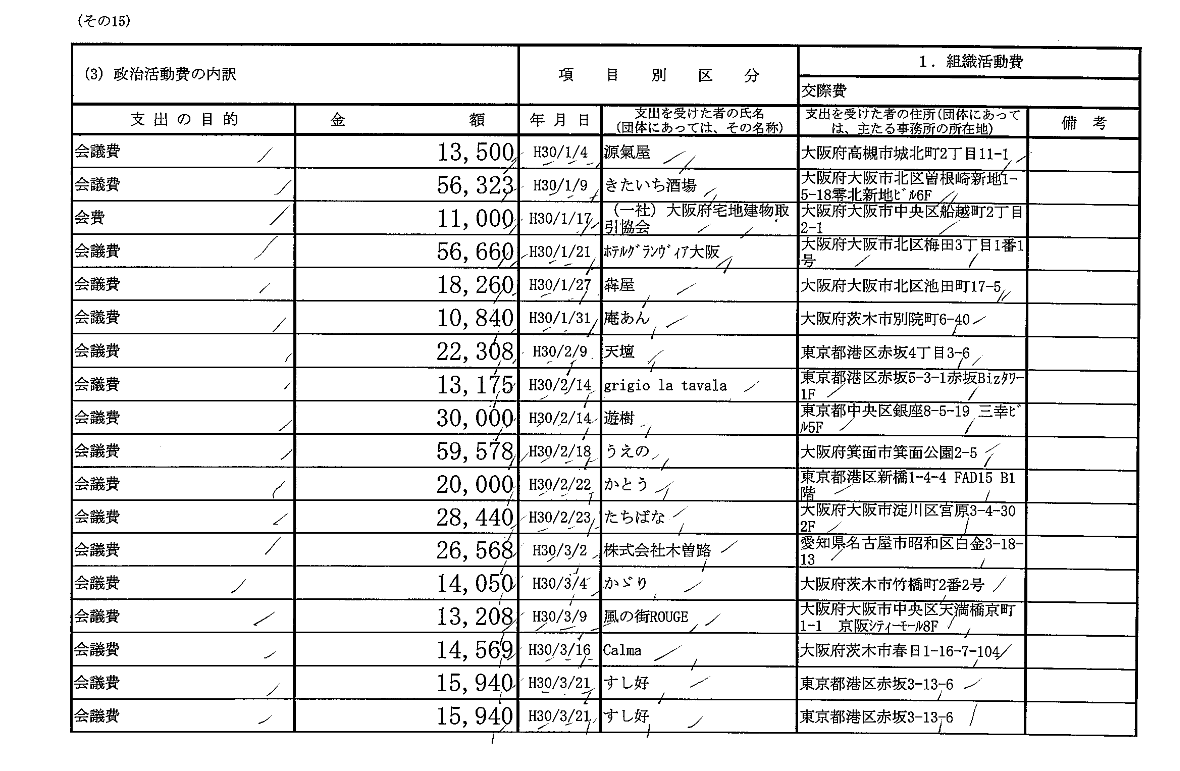 (その15)
(3) 政治活動費の内訳 項目別区分 1. 組織活動費
交際費
支出の目的 金額 年月日 支出を受けた者の氏名 支出を受けた者の住所(団体にあって 備考
(団体にあっては、その名称) は、主たる事務所の所在地)
会議費 13,500 H30/1/4 源氣屋 大阪府高槻市城北町2丁目11-1
会議費 56,323 H30/1/9 きたいち酒場 大阪府大阪市北区曽根崎新地1-
5-18零北新地ﾋﾞﾙ6F
会費 11,000 H30/1/17 (一社)大阪府宅地建物取 大阪府大阪市中央区船越町2丁目
引協会 2-1
会議費 56,660 H30/1/21 ﾎﾃﾙｸﾞﾗﾝｳﾞｨｱ大阪 大阪府大阪市北区梅田3丁目1番1
号
会議費 18,260 H30/1/27 犇屋 大阪府大阪市北区池田町17-5
会議費 10,840 H30/1/31 庵あん 大阪府茨木市別院町6-40
会議費 22,308 H30/2/9 天壇 東京都港区赤坂4丁目3-6
会議費 13,175 H30/2/14 grigio la tavala 東京都港区赤坂5-3-1赤坂Bizﾀﾜｰ
1F
会議費 30,000 H30/2/14 遊樹 東京都中央区銀座8-5-19 三幸ﾋﾞ
ﾙ5F
会議費 59,578 H30/2/18 うえの 大阪府箕面市箕面公園2-5
会議費 20,000 H30/2/22 かとう 東京都港区新橋1-4-4 FAD15 B1
階
会議費 28,440 H30/2/23 たちばな 大阪府大阪市淀川区宮原3-4-30
2F
会議費 26,568 H30/3/2 株式会社木曽路 愛知県名古屋市昭和区白金3-18-
13
会議費 14,050 H30/3/4 かゞり 大阪府茨木市竹橋町2番2号
会議費 13,208 H30/3/9 風の街ROUGE 大阪府大阪市中央区天満橋京町
1-1 京阪ｼﾃｨｰﾓｰﾙ8F
会議費 14,569 H30/3/16 Calma 大阪府茨木市春日1-16-7-104
会議費 15,940 H30/3/21 すし好 東京都港区赤坂3-13-6
会議費 15,940 H30/3/21 すし好 東京都港区赤坂3-13-6